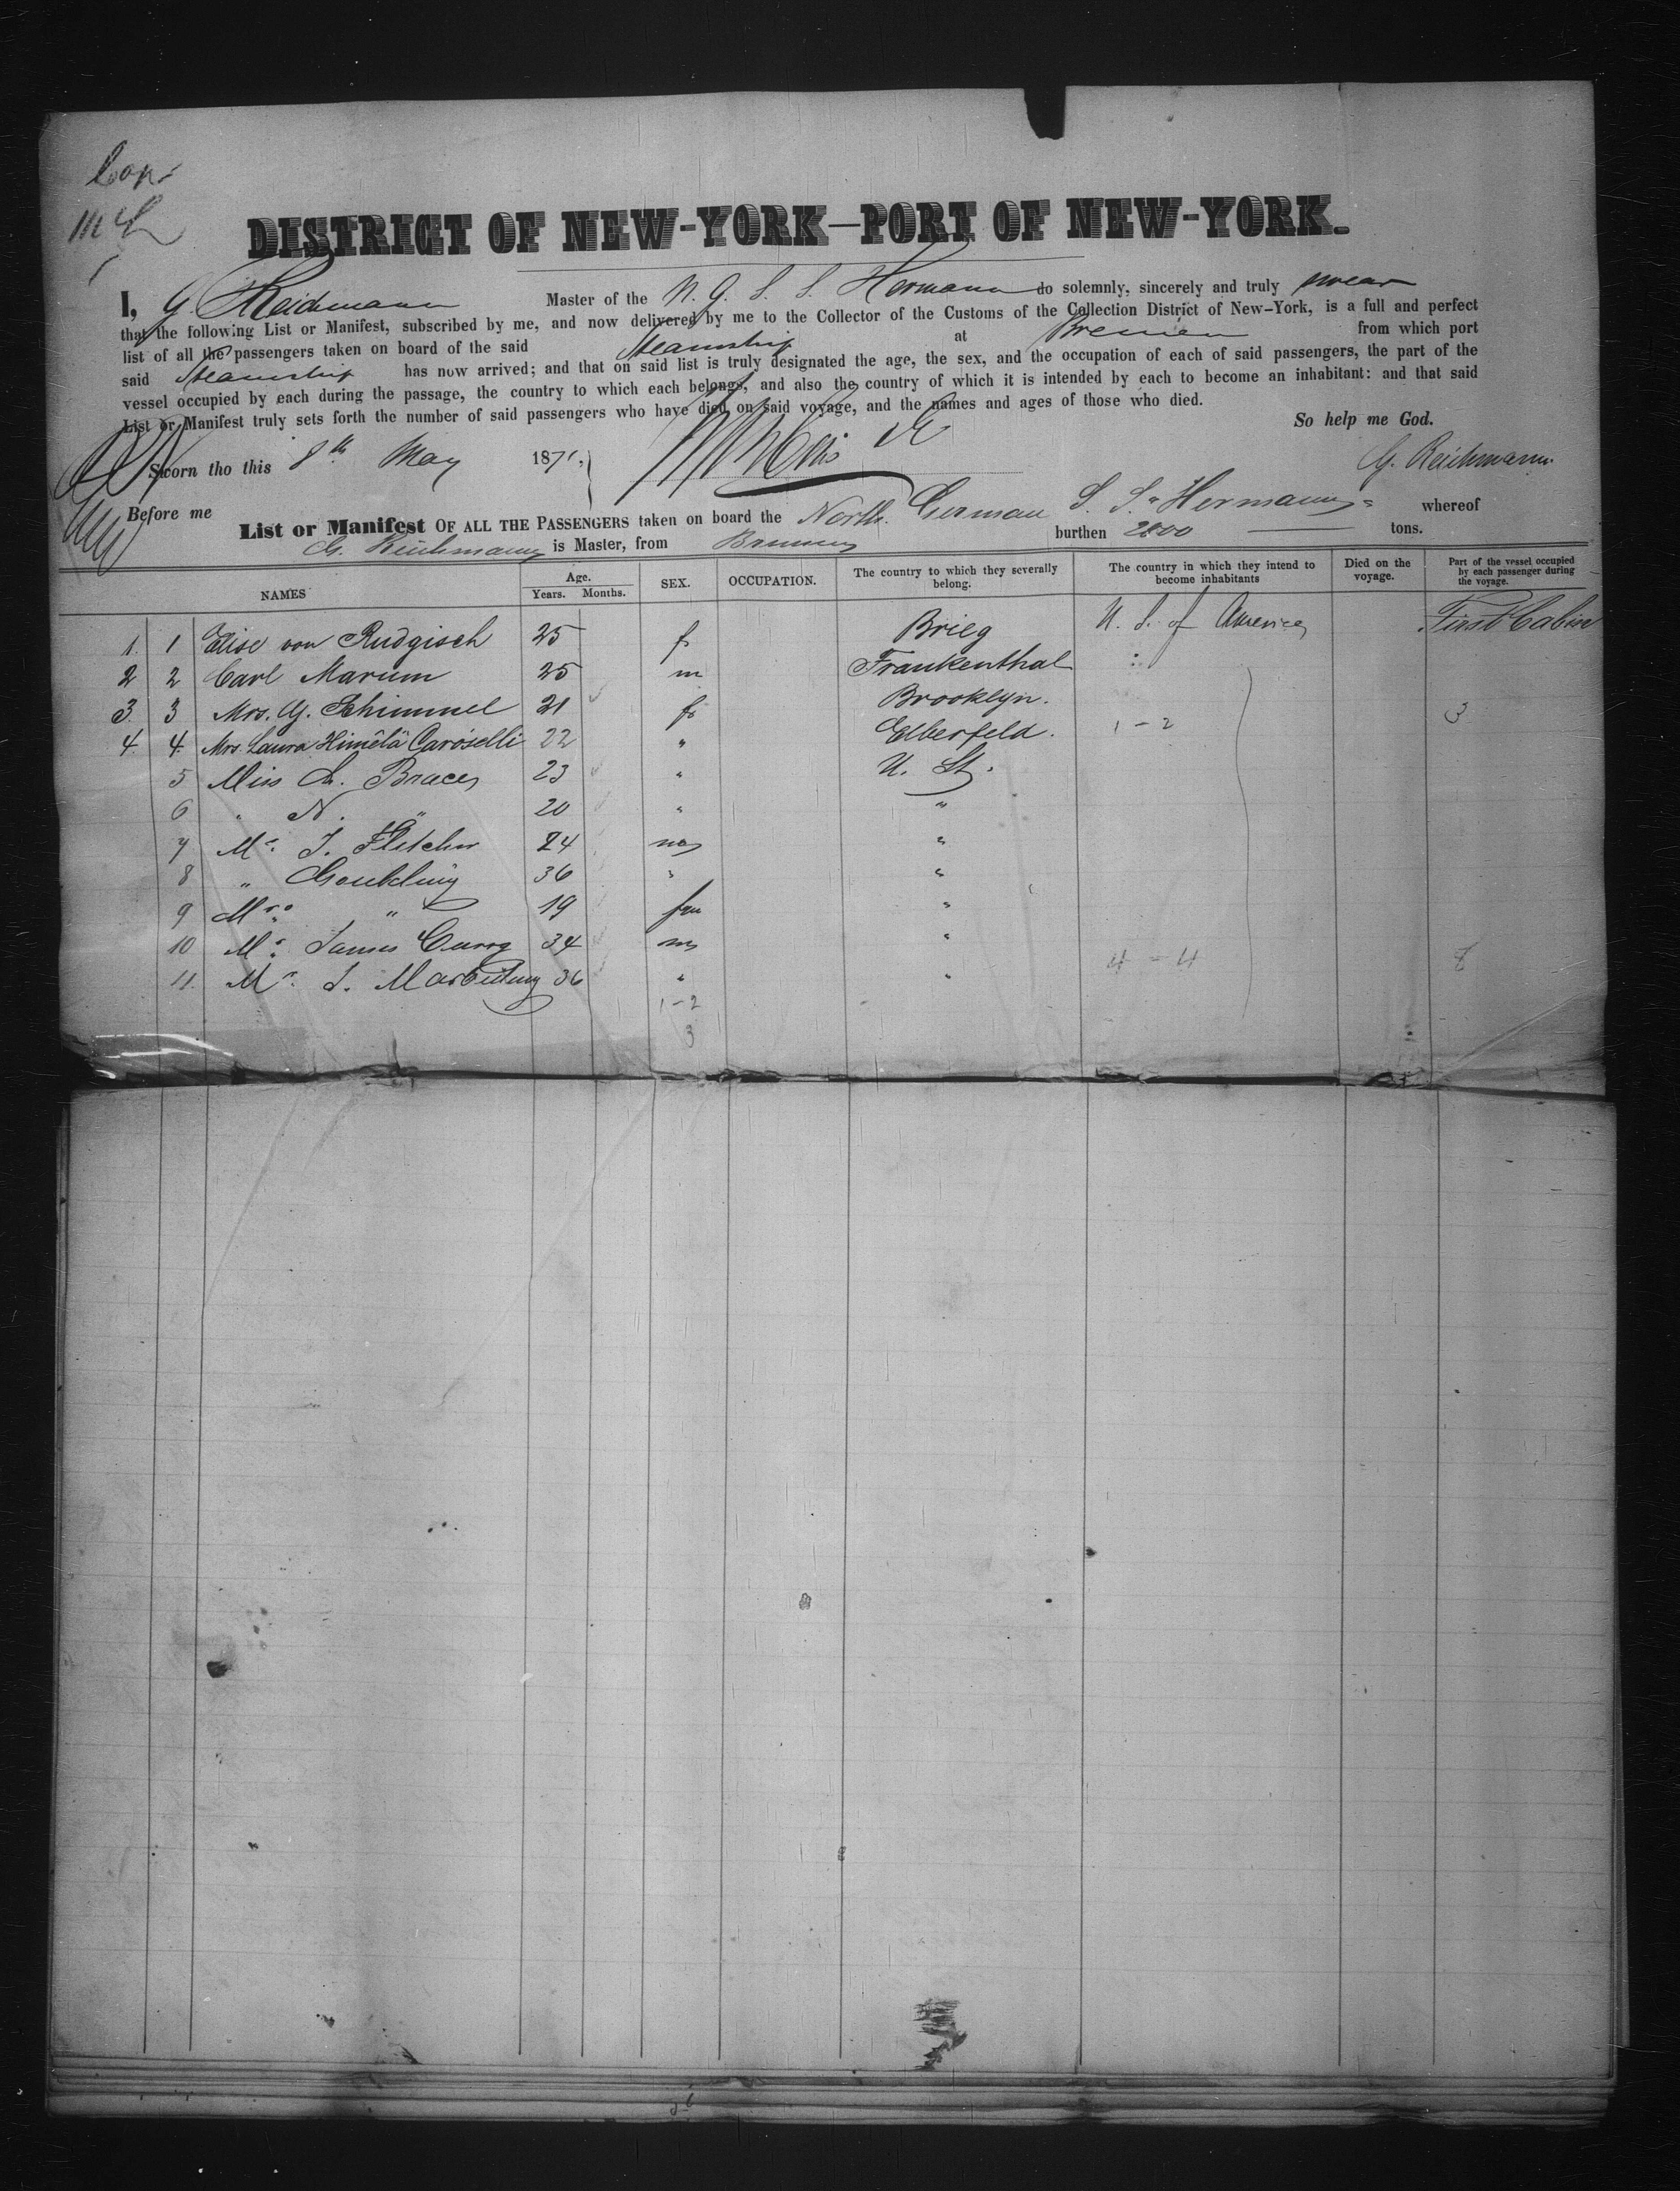 DISTRICT OF NEW-YORK—PORT OF NEW-YORK.
I, G. Reichmann Master of the N. G. S. S. Hermann do solemnly, sincerely and truly swear
that the following List or Manifest, subscribed by me, and now delivered by me to the Collector of the Customs of the Collection District of New-York, is a full and perfect
list of all the passengers taken on board of the said Steamship at Bremen from which port
said Steamship has now arrived; and that on said list is truly designated the age, the sex, and the occupation of each of said passengers, the part of the
vessel occupied by each during the passage, the country to which each belongs, and also the country of which it is intended by each to become an inhabitant: and that said
List or Manifest truly sets forth the number of said passengers who have died on said voyage, and the names and ages of those who died.
So help me God.
Sworn tho this 8th May 1871. G. Reichmann.
Before me
List or Manifest OF ALL THE PASSENGERS taken on board the North. German S. S. "Hermann" whereof
G. Reichmann is Master, from Bremen burthen 2800 tons.
NAMES Age. Years. Months. SEX. OCCUPATION. The country to which they severally belong. The country in which they intend to become inhabitants Died on the voyage. Part of the vessel occupied by each passenger during the voyage.
1. 1 Elise von Rudgisch 25 f. Brieg U. S. of America First Cabin
2 2 Carl Marum 25 m Frankenthal :
3. 3 Mrs. G. Schimmel 21 f. Brooklyn. 3
4. 4. Mrs. Laura Himêlä Caroselli 22 " Elberfeld. 1-2
5 Miss Bracey 23 " U. St.
6 " N. " 20 " "
7 Mr. J. Fletcher 24 m "
8 " Goulding 36 " "
9 Mrs. " 19 fm "
10 Mr. James Curry 34 m "
11. Mr. J. 36 " " 4-4 8
1-2
3